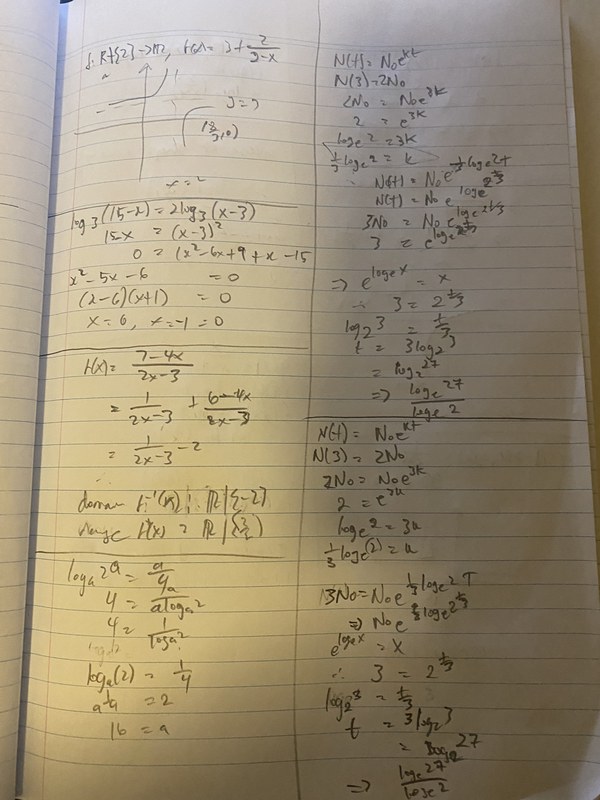 f: R\{2}→R, f(x) = 3 + 2/(2-x)
y=3
x=2
log3(15-x) = 2log3(x-3)
15-x = (x-3)²
0 = (x²-6x+9+x-15
x²-5x-6 = 0
(x-6)(x+1) = 0
x=6, x=-1 = 0
f(x) = (7-4x)/(2x-3)
= 1/(2x-3) + (6-4x)/(2x-3)
= 1/(2x-3) - 2
domain f⁻¹(x): R|{-2}
range f⁻¹(x) = R|{3/2}
4 = 1/loga2
loga(2) = 1/4
a^1/4 = 2
16 = a
N(t) = N0e^kt
N(3) = 2N0
2N0 = N0e^3k
2 = e^3k
loge2 = 3k
1/3 loge2 = k
∴ N(t) = N0e^(1/3 loge2 t)
N(t) = N0 e^(loge 2^t/3)
3N0 = N0 e^(loge 2^t/3)
3 = e^(loge 2^t/3)
⇒ e^(loge x) = x
∴ 3 = 2^t/3
log2 3 = t/3
t = 3log2 3
= log2 27
⇒ loge 27/loge 2
N(t) = N0e^kt
N(3) = 2N0
2N0 = N0e^3k
2 = e^3k
loge2 = 3k
1/3 loge(2) = k
3N0 = N0e^(1/3 loge2 t)
e^(loge x) = x
∴ 3 = 2^t/3
log2 3 = t/3
t = 3log2 3
= log2 27
⇒ loge 27/loge 2